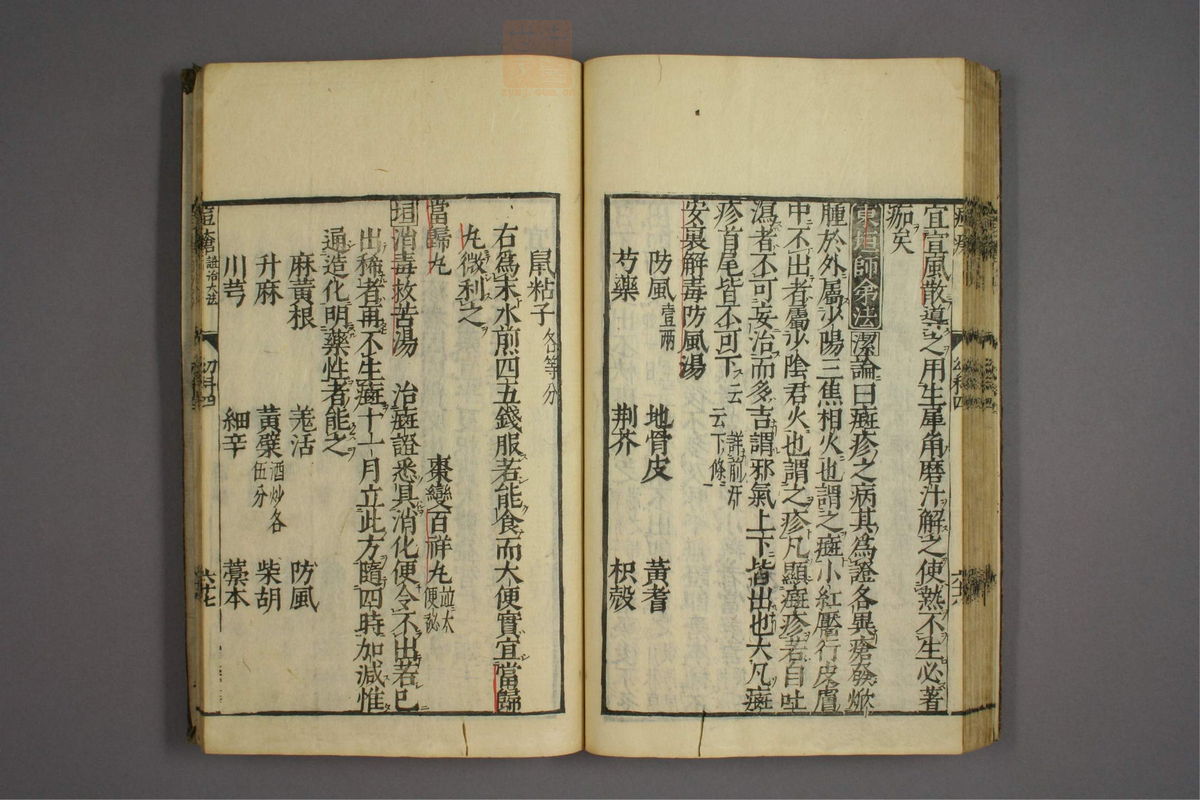 宜宣風散導之用生犀角磨汁解之使熱不生必著
痂矣
東垣師弟法 潔論曰癍疹之病其為證各異瘡發焮
腫於外屬少陽三焦相火也謂之癍小紅靨行皮膚
中不出者屬少陰君火也謂之疹凡顯癍疹若自吐
瀉者不可妄治而多吉謂邪氣上下皆出也大凡癍
疹首尾皆不可下云云 詳前 下條
安裏解毒防風湯
防風壹兩 地骨皮 黃耆
芍藥 荆芥 枳殼
鼠粘子各等分
右為末水煎四五錢服若能食而大便實宜當歸
丸微利之
當歸丸 棗變百祥丸並大便祕
垣消毒救苦湯 治癍證悉具消化便令不出若已
出稀者再不生癍十一月立此方隨四時加減惟
通造化明藥性者能之
麻黃根 羌活 防風
升麻 黃蘗酒炒各伍分 柴胡
川芎 細辛 藁本
痘瘡 證治大法 幼科四 六十七